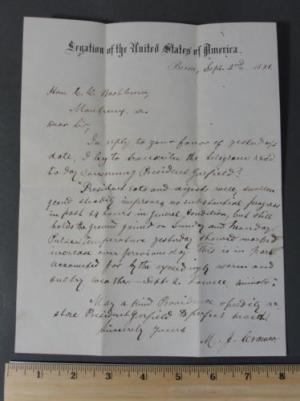 Legation of the United States of America.
Berne, Sept. 2nd 1881.
Hon. E. B. Washburne,
Dear Sir,
In reply to your favor of yesterday's
date, I beg to transcribe the telegram rec'd
to day concerning President Garfield:
"President eats and digests well, swollen
gland steadily improves, no substantial progress
in past 24 hours in general condition, but still
holds the ground gained on Sunday and Monday.
Pulse & temperature yesterday showed marked
increase over previous day. This is in part
accounted for by the exceedingly warm and
sultry weather
May a kind Providence speedily re-
store President Garfield to perfect health
Sincerely Yours
M. J. Cramer
1 2 3 4 5 6 7 8